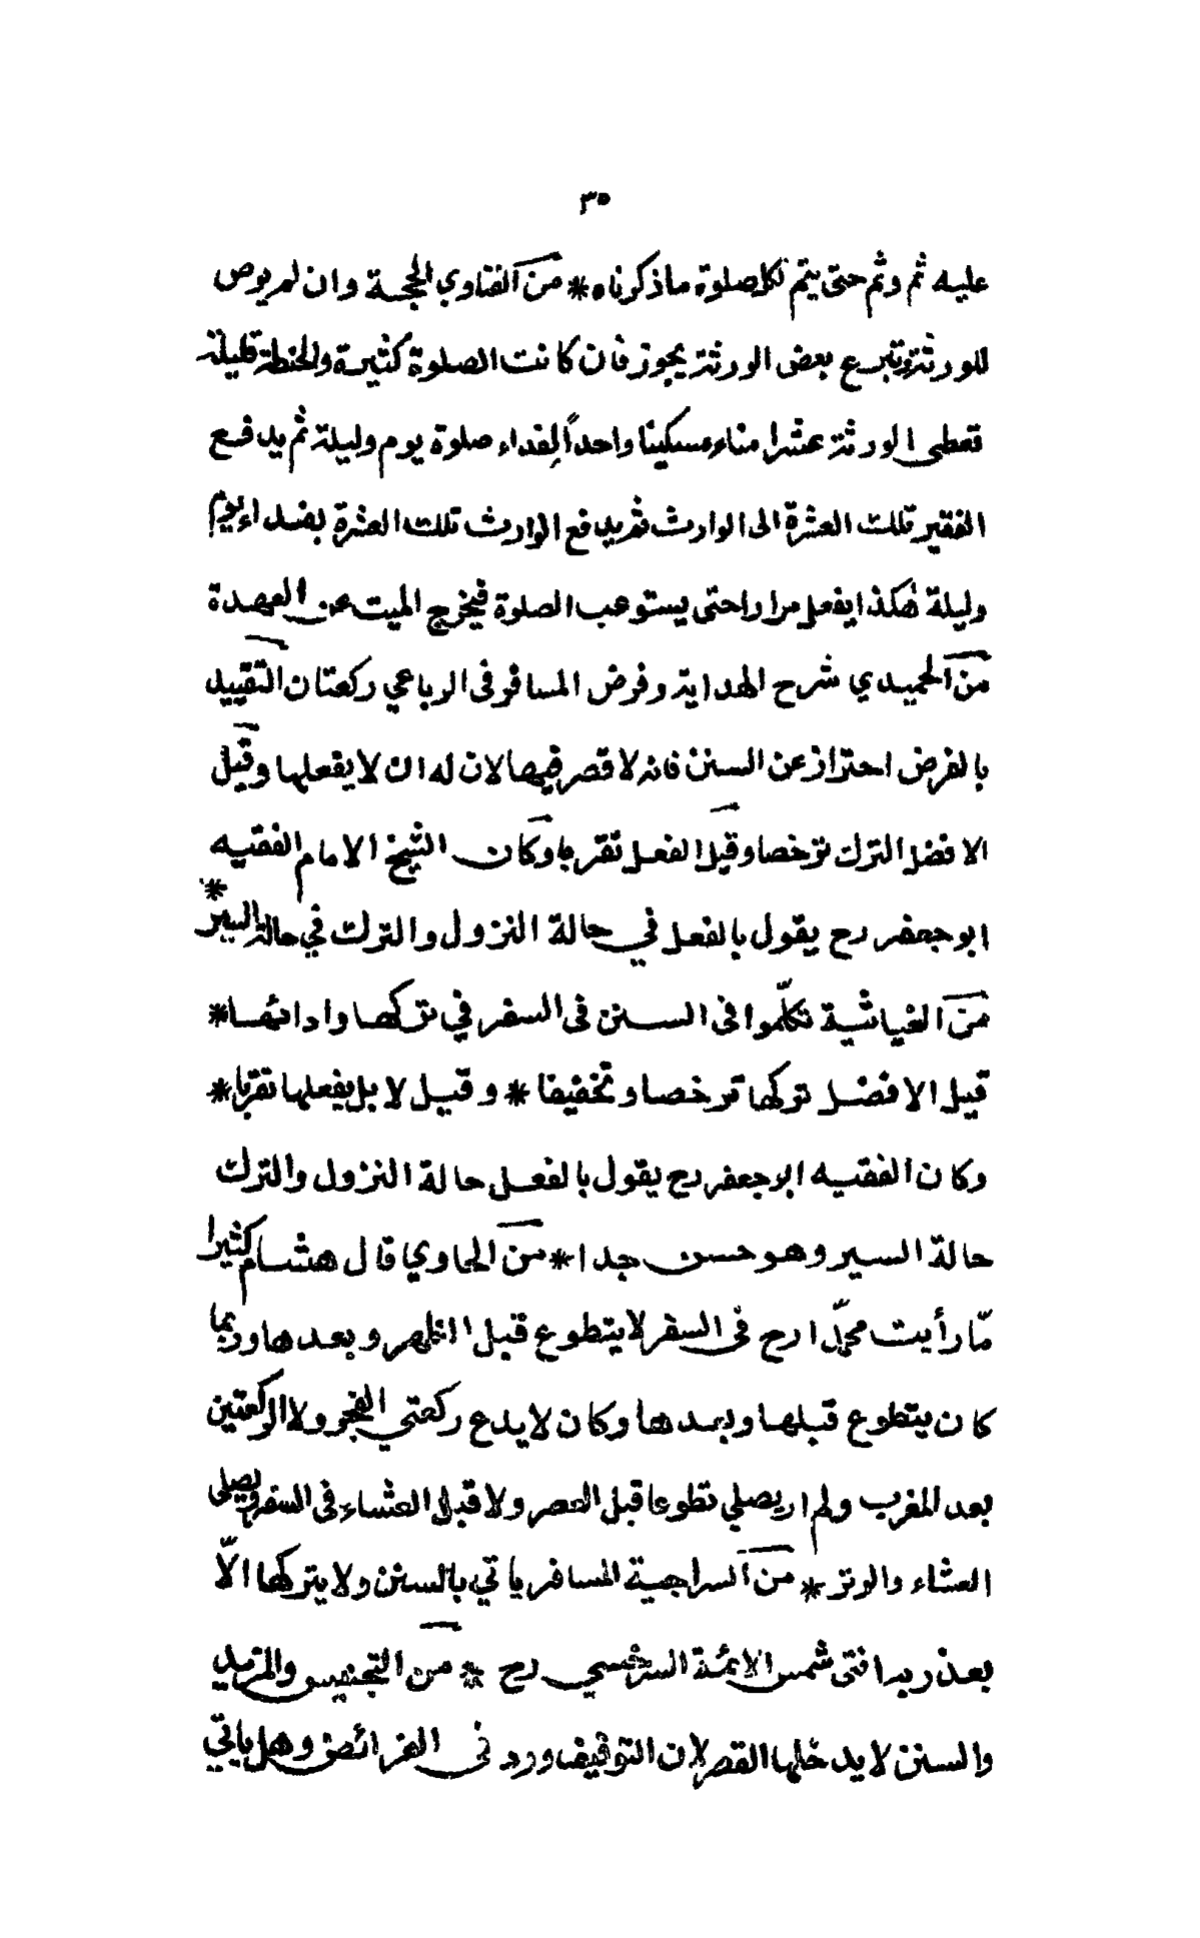 ٣٥
عليه ثم وثم حتى يتم لكل صلوة ما ذكرناه * من الفتاوي الحجية وان لم يوص
للورثة وتبرع بعض الورثة يجوز فان كانت الصلوة كثيرة والحنطة قليلة
تعطى الورثة عشرا مناء مسكينا واحداً لفداء صلوة يوم وليلة ثم يدفع
الفقير تلك العشرة الى الوارث ثم يدفع الوارث تلك العشرة بفداء يوم
وليلة هكذا يفعل مرارا حتى يستوعب الصلوة فيخرج الميت عن العهدة
من الحميدي شرح الهداية وفرض المسافر فى الرباعي ركعتان التقييد
بالفرض احتراز عن السنن فانه لا قصر فيها لان له ان لا يفعلها وقيل
الافضل الترك ترخصا وقيل الفعل تقربا وكان الشيخ الامام الفقيه
ابو جعفر رح يقول بالفعل في حالة النزول والترك في حالة السير *
من الغياثية تكلّموا فى السنن فى السفر في تركها وادائها *
قيل الافضل تركها ترخصا وتخفيفا * وقيل لا بل يفعلها تقربا *
وكان الفقيه ابو جعفر رح يقول بالفعل حالة النزول والترك
حالة السير وهو حسن جدا * من الحاوي قال هشام كثيرا
مّا رأيت محمّدا رح فى السفر لا يتطوع قبل الظهر وبعدها وربما
كان يتطوع قبلها وبعدها وكان لا يدع ركعتي الفجر ولا الركعتين
بعد المغرب ولم ار يصلي تطوعا قبل العصر ولا قبل العشاء فى السفر ويصلى
العشاء والوتر * من السراجية المسافر ياتي بالسنن ولا يتركها الّا
بعذر به افتى شمس الائمة السرخسي رح * من التجنيس والمزيد
والسنن لا يدخلها القصر لان التوقيف ورد فى الفرائض وهل ياتي